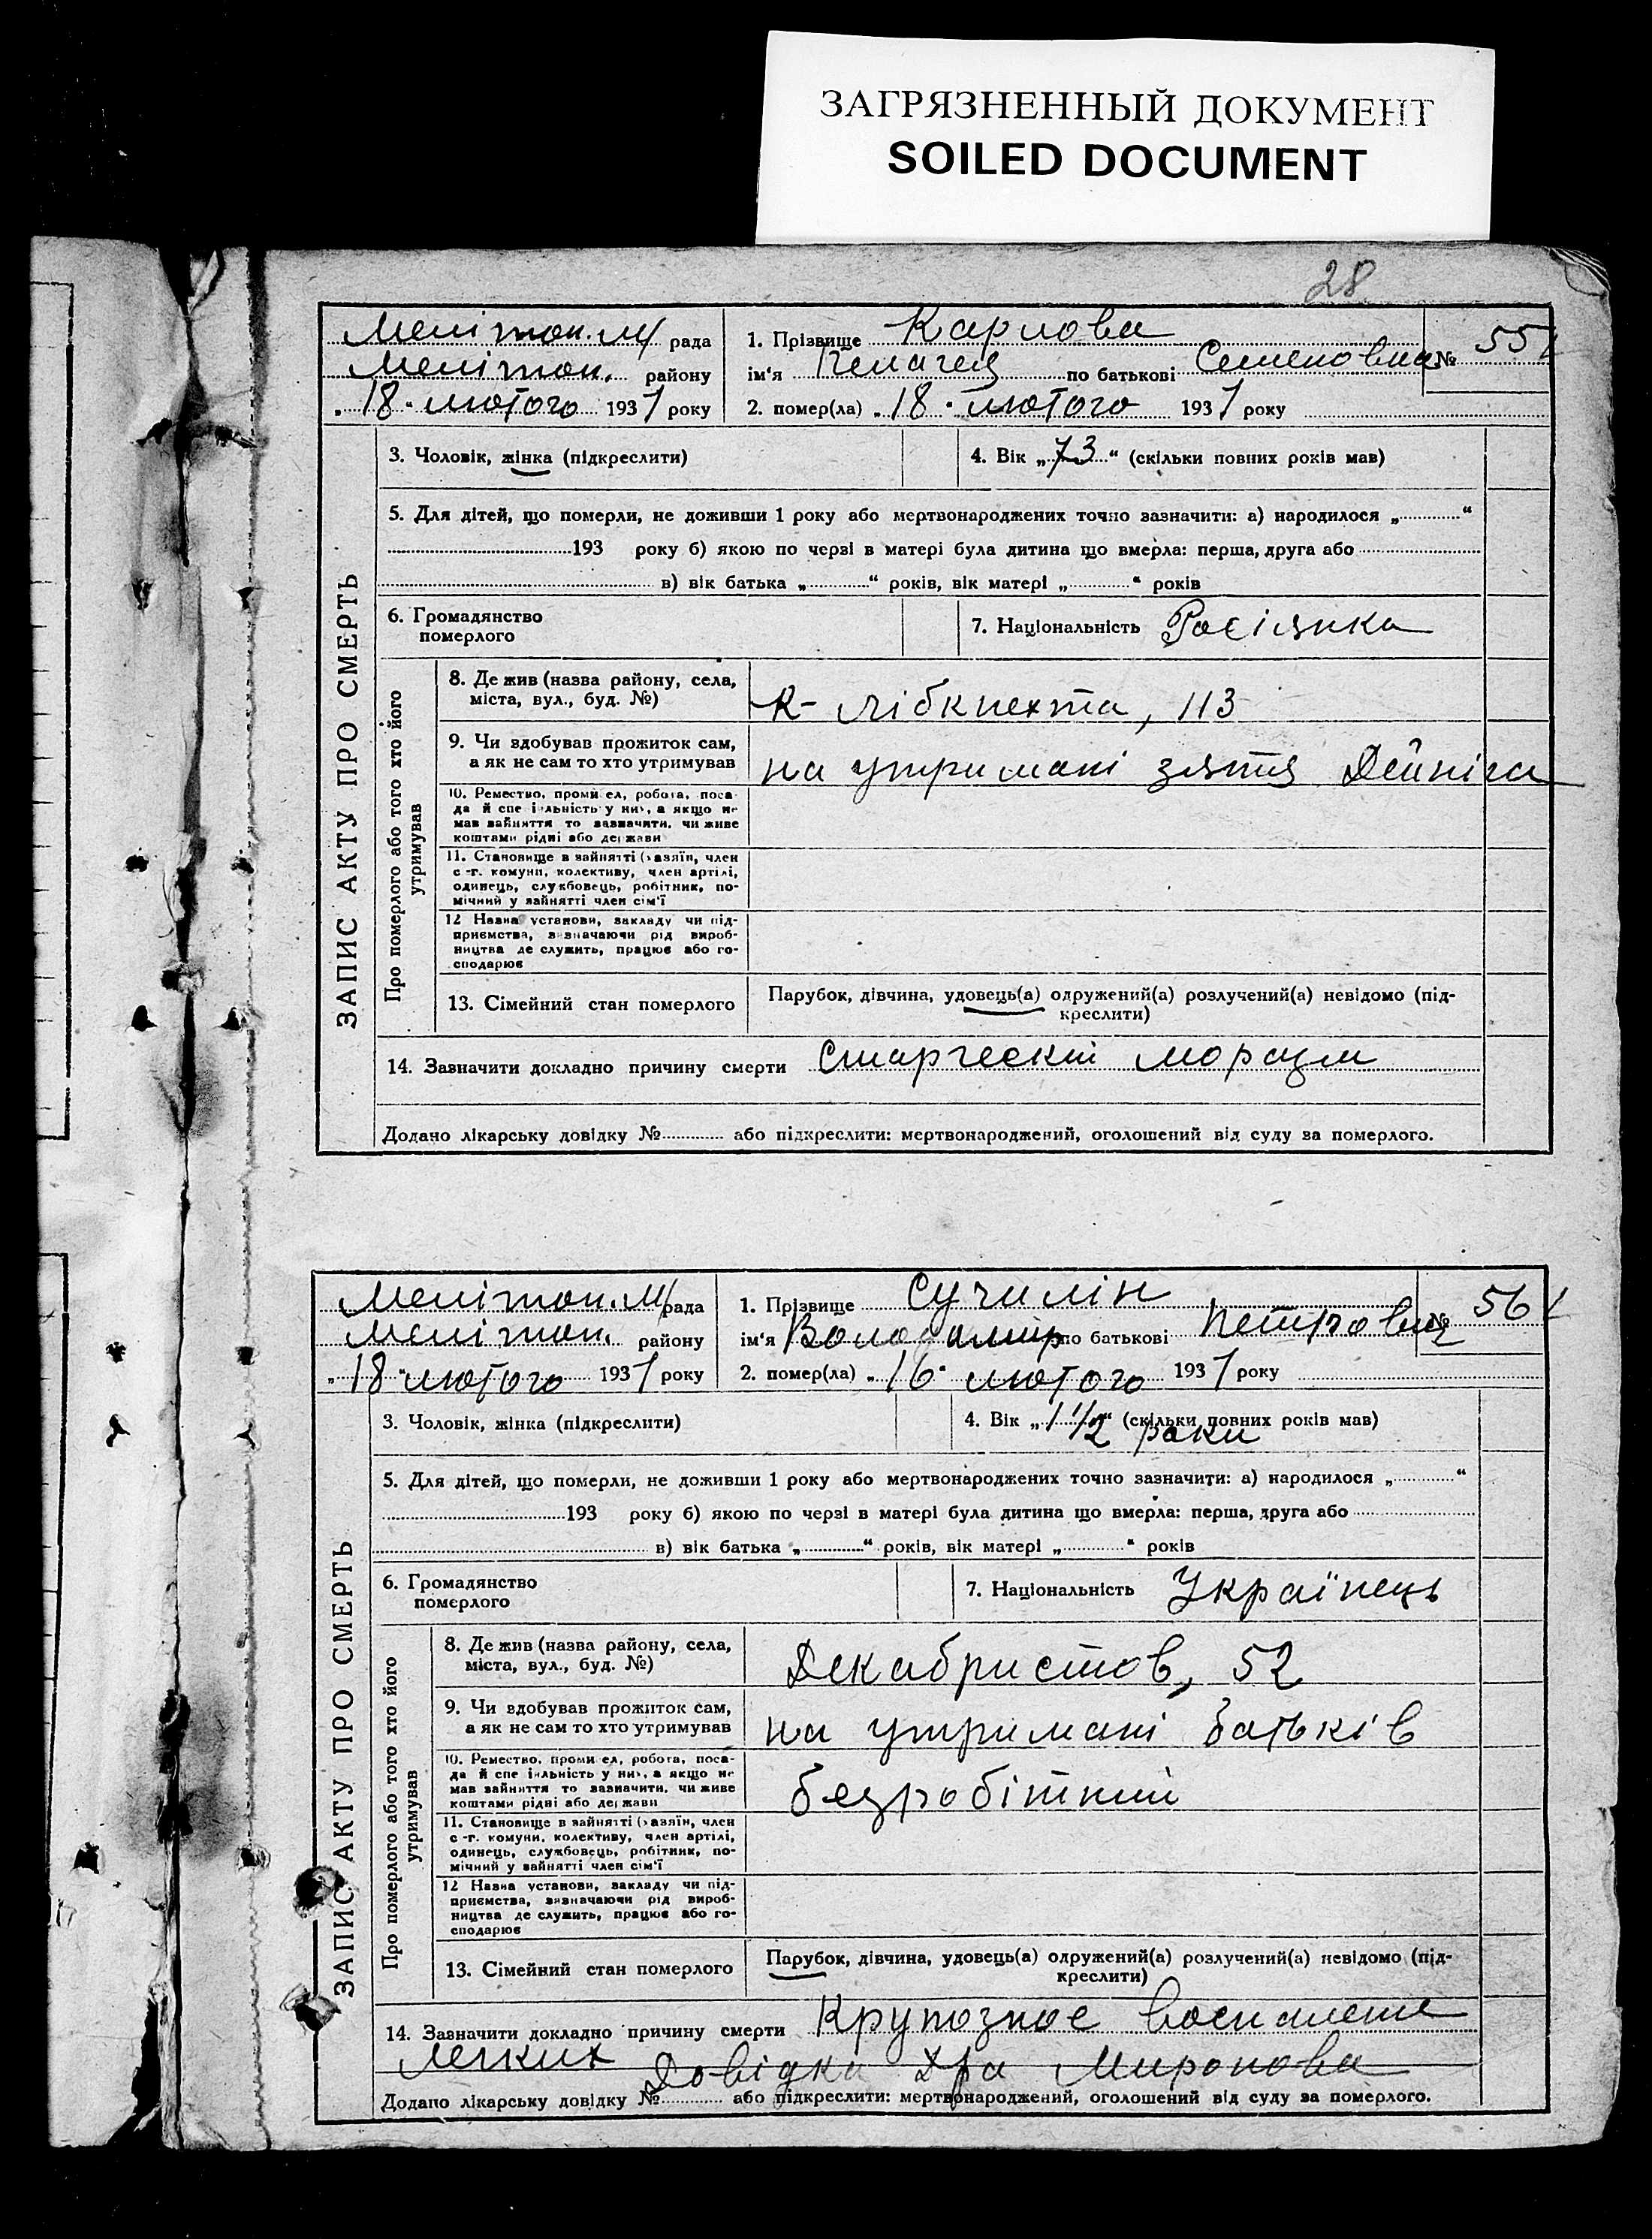 ЗАГРЯЗНЕННЫЙ ДОКУМЕНТ
SOILED DOCUMENT
28
ЗАПИС АКТУ ПРО СМЕРТЬ
Меліт​оп. М/ рада
Мелітоп. району
„18“ лютого 1931 року
1. Прізвище Карлова
ім‘я Пелагея по батькові Семеновна № 55
2. помер(ла) „18“ лютого 1931 року
3. Чоловік, жінка (підкреслити) 4. Вік „73“ (скільки повних років мав)
5. Для дітей, що померли, не доживши 1 року або мертвонароджених точно зазначити: а) народилося „ “
193 року б) якою по черзі в матері була дитина що вмерла: перша, друга або
в) вік батька „ “ років, вік матері „ “ років
6. Громадянство померлого 7. Національність Росіянка
Про померлого або того хто його утримував
8. Де жив (назва району, села,
міста, вул., буд. №) К- Лібкнехта, 113
9. Чи здобував прожиток сам,
а як не сам то хто утримував на утримані зятя
10. Ремество, проми ел, робота, поса-
да й спе і льність у ни , а якщо не
мав зайняття то зазначити, чи живе
коштами рідні або держави
11. Становище в зайнятті (хазяїн, член
с -г. комуни, колективу, член артілі,
одинець, службовець, робітник, по-
мічний у зайнятті член сім‘ї
12 Назва установи, закладу чи під-
приємства, визначаючи рід вироб-
ництва де служить, працює або го-
сподарює
13. Сімейний стан померлого Парубок, дівчина, удовець(а) одружений(а) розлучений(а) невідомо (під-
креслити)
14. Зазначити докладно причину смерти Старческий моразм
Додано лікарську довідку № або підкреслити: мертвонароджений, оголошений від суду за померлого.
ЗАПИС АКТУ ПРО СМЕРТЬ
Мелітоп. М/ рада
Мелітоп. району
„18“ лютого 1931 року
1. Прізвище Сучилін
ім‘я Володимир по батькові Петрович № 56
2. помер(ла) „16“ лютого 1931 року
3. Чоловік, жінка (підкреслити) 4. Вік „1 1/2“ (скільки повних років мав)
роки
5. Для дітей, що померли, не доживши 1 року або мертвонароджених точно зазначити: а) народилося „ “
193 року б) якою по черзі в матері була дитина що вмерла: перша, друга або
в) вік батька „ “ років, вік матері „ “ років
6. Громадянство померлого 7. Національність Українець
Про померлого або того хто його утримував
8. Де жив (назва району, села,
міста, вул., буд. №) Декабристов, 52
9. Чи здобував прожиток сам,
а як не сам то хто утримував на утримані батьків
10. Ремество, проми ел, робота, поса-
да й спе іяльність у ни , а якщо не
мав зайняття то зазначити, чи живе
коштами рідні або держави безробітний
11. Становище в зайнятті (хазяїн, член
с -г. комуни, колективу, член артілі,
одинець, службовець, робітник, по-
мічний у зайнятті член сім‘ї
12 Назва установи, закладу чи під-
приємства, визначаючи рід вироб-
ництва де служить, працює або го-
сподарює
13. Сімейний стан померлого Парубок, дівчина, удовець(а) одружений(а) розлучений(а) невідомо (під-
креслити)
14. Зазначити докладно причину смерти Крупозное воспаление
легких Довідка Д/ра Миронова
Додано лікарську довідку № або підкреслити: мертвонароджений, оголошений від суду за померлого.